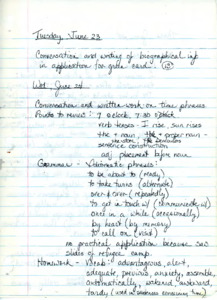 Tuesday, June 23
Conversation and writing of biographical info
in application for green card.
Wed, June 24
Conversation and written work on time phrases
Points to movies: 7 o'clock, 7:30 o'clock
verb tenses - I rise sun rises
the + noun, the + proper noun -
sentence construction
adj placement before noun
Grammar - Idiomatic phrases:
to be about to (ready)
to take turns (alternate)
over & over (repeatedly)
to get in touch w/ (communicate w/)
once in a while (occasionally)
by heart (by memory)
to call on (visit)
no practical application because
sides of refugee camp.
Homework - Vocab: advantageous, alert,
adequate, previous, anxiety, assemble,
automatically, awkward,
tardy (used in sentences concerning them)